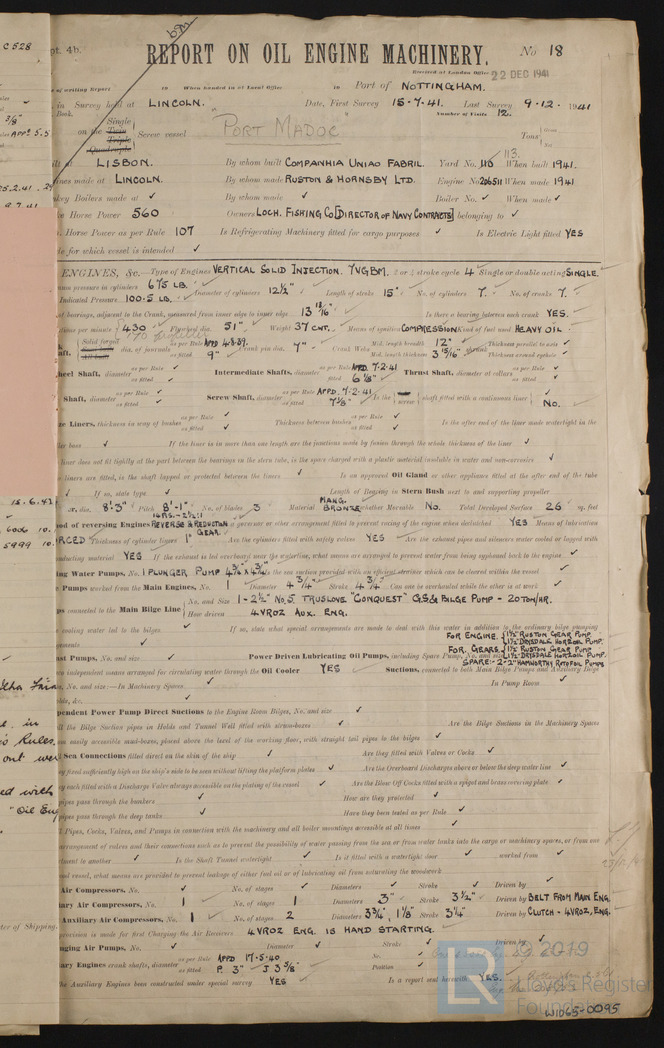 C 528
pt. 4b.
REPORT ON OIL ENGINE MACHINERY. No 18
Received at London Office 22 DEC 1941
of writing Report 19 When handed in at Local Office 19 Port of NOTTINGHAM.
in Survey held at LINCOLN. Date, First Survey 15-7-41. Last Survey 9-12-1941
Book. Number of Visits 12.
on the Single Twin Triple Quadruple Screw vessel "PORT MADOC" Tons Gross Net
LISBON. By whom built COMPANHIA UNIAO FABRIL. Yard No. 110 113. When built 1941.
ines made at LINCOLN. By whom made RUSTON & HORNSBY LTD. Engine No. 206511 When made 1941
key Boilers made at ✓ By whom made ✓ Boiler No. ✓ When made ✓
ke Horse Power 560 Owners LOCH. FISHING CO [DIRECTOR OF NAVY CONTRACTS] belonging to ✓
. Horse Power as per Rule 107 Is Refrigerating Machinery fitted for cargo purposes ✓ Is Electric Light fitted YES
de for which vessel is intended ✓
ENGINES, &c. Type of Engines VERTICAL SOLID INJECTION. 7VGBM. 2 or 4 stroke cycle 4 Single or double acting SINGLE.
pressure in cylinders 675 LB. Diameter of cylinders 12½" Length of stroke 15" No. of cylinders 7. No. of cranks 7.
Indicated Pressure 100.5 LB.
of bearings, adjacent to the Crank, measured from inner edge to inner edge 13 13/16" Is there a bearing between each crank YES.
utions per minute 430 Flywheel dia. 51" Weight 37 CWT. Means of ignition COMPRESSION Kind of fuel used HEAVY OIL.
Solid forged dia. of journals as per Rule APPD 4.8.39. as fitted 9" Crank pin dia. 7" Crank Webs Mid. length breadth 12" Mid. length thickness 3 15/16" shrunk Thickness parallel to axis ✓ Thickness around eyehole ✓
heel Shaft, diameter as per Rule ✓ as fitted ✓ Intermediate Shafts, diameter as per Rule APPD. 7-2-41 as fitted 6⅛" Thrust Shaft, diameter at collars as per Rule ✓ as fitted ✓
Shaft, diameter as per Rule ✓ as fitted ✓ Screw Shaft, diameter as per Rule APPD. 7-2-41 as fitted 7⅛" Is the screw shaft fitted with a continuous liner No.
ze Liners, thickness in way of bushes as per Rule ✓ as fitted ✓ Thickness between bushes as per Rule ✓ as fitted ✓ Is the after end of the liner made watertight in the
ler boss ✓ If the liner is in more than one length are the junctions made by fusion through the whole thickness of the liner ✓
liner does not fit tightly at the part between the bearings in the stern tube, is the space charged with a plastic material insoluble in water and non-corrosive ✓
liners are fitted, is the shaft lapped or protected between the liners ✓ Is an approved Oil Gland or other appliance fitted at the after end of the tube
✓ If so, state type ✓ Length of Bearing in Stern Bush next to and supporting propeller
dia. 8'-3" Pitch 8'-1" No. of blades 3 Material MANG. BRONZE whether Moveable No. Total Developed Surface 26 sq. feet
hod of reversing Engines REVERSE & REDUCTION GEAR Is a governor or other arrangement fitted to prevent racing of the engine when declutched YES Means of lubrication
RCED Thickness of cylinder liners 1" Are the cylinders fitted with safety valves YES Are the exhaust pipes and silencers water cooled or lagged with
nducting material YES If the exhaust is led overboard near the waterline, what means are arranged to prevent water being syphoned back to the engine ✓
ing Water Pumps, No. 1 PLUNGER PUMP 4¾" X 4¾" Is the sea suction provided with an efficient strainer which can be cleared within the vessel ✓
Pumps worked from the Main Engines, No. 1 Diameter 4¾" Stroke 4¾" Can one be overhauled while the other is at work ✓
ps connected to the Main Bilge Line No. and Size 1 - 2½" No 5 TRUSLOVE "CONQUEST" G.S. & BILGE PUMP - 20 TON/HR.
How driven 4VROZ AUX. ENG.
cooling water led to the bilges ✓ If so, state what special arrangements are made to deal with this water in addition to the ordinary bilge pumping
FOR ENGINE. 1½" RUSTON GEAR PUMP.
1½" DRYSDALE HORZOIL PUMP.
gements ✓ FOR. GEARS. 1½" RUSTON GEAR PUMP
ast Pumps, No. and size ✓ Power Driven Lubricating Oil Pumps, including Spare Pump, No. and size 1½" DRYSDALE HORZOIL PUMP.
SPARE - 2 - 2" HAMWORTHY ROTOFOIL PUMPS
independent means arranged for circulating water through the Oil Cooler YES Suctions, connected to both Main Bilge Pumps and Auxiliary Bilge
, No. and size:—In Machinery Spaces ✓ In Pump Room ✓
olds, &c. ✓
pendent Power Pump Direct Suctions to the Engine Room Bilges, No. and size ✓
ll the Bilge Suction pipes in Holds and Tunnel Well fitted with strum-boxes ✓ Are the Bilge Suctions in the Machinery Spaces
om easily accessible mud-boxes, placed above the level of the working floor, with straight tail pipes to the bilges ✓
Sea Connections fitted direct on the skin of the ship ✓ Are they fitted with Valves or Cocks ✓
ey fixed sufficiently high on the ship's side to be seen without lifting the platform plates ✓ Are the Overboard Discharges above or below the deep water line ✓
ey each fitted with a Discharge Valve always accessible on the plating of the vessel ✓ Are the Blow Off Cocks fitted with a spigot and brass covering plate ✓
pipes pass through the bunkers ✓ How are they protected ✓
pipes pass through the deep tanks ✓ Have they been tested as per Rule ✓
l Pipes, Cocks, Valves, and Pumps in connection with the machinery and all boiler mountings accessible at all times ✓
arrangement of valves and their connections such as to prevent the possibility of water passing from the sea or from water tanks into the cargo or machinery spaces, or from one
rtment to another ✓ Is the Shaft Tunnel watertight ✓ Is it fitted with a watertight door ✓ worked from ✓
od vessel, what means are provided to prevent leakage of either fuel oil or of lubricating oil from saturating the woodwork
Air Compressors, No. ✓ No. of stages ✓ Diameters ✓ Stroke ✓ Driven by ✓
iary Air Compressors, No. 1 No. of stages 1 Diameters 3" Stroke 3½" Driven by BELT FROM MAIN ENG.
Auxiliary Air Compressors, No. 1 No. of stages 2 Diameters 3¾", 1⅛" Stroke 3¼" Driven by CLUTCH - 4VROZ, ENG.
provision is made for first Charging the Air Receivers 4VROZ ENG. IS HAND STARTING.
nging Air Pumps, No. ✓ Diameter ✓ Stroke ✓ Driven by ✓
iary Engines crank shafts, diameter as per Rule APPD 17-5-40 as fitted P. 3" J 3⅝" No. ✓ Position ✓
the Auxiliary Engines been constructed under special survey YES Is a report sent herewith YES.
© 2019
LR Lloyd's Register Foundation
W1065-0095
15.6.41
"Oil Eng
ter of Shipping.